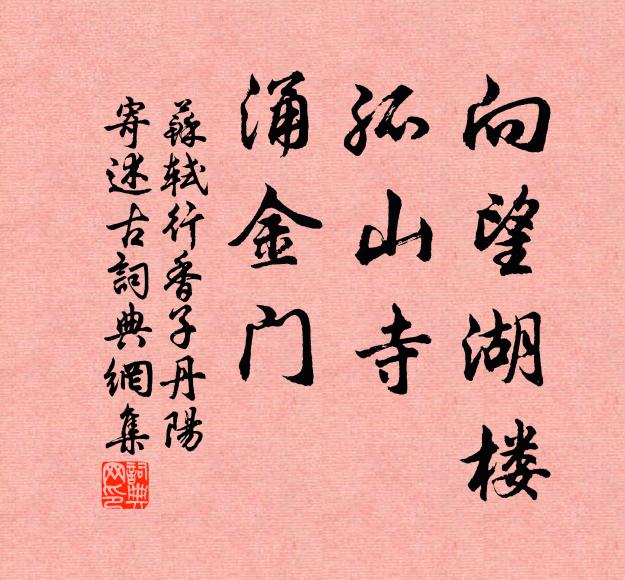 向望湖楼
孤山寺
涌金门
蘇軾行香子丹陽
寄述古詞典網集
詞典网印